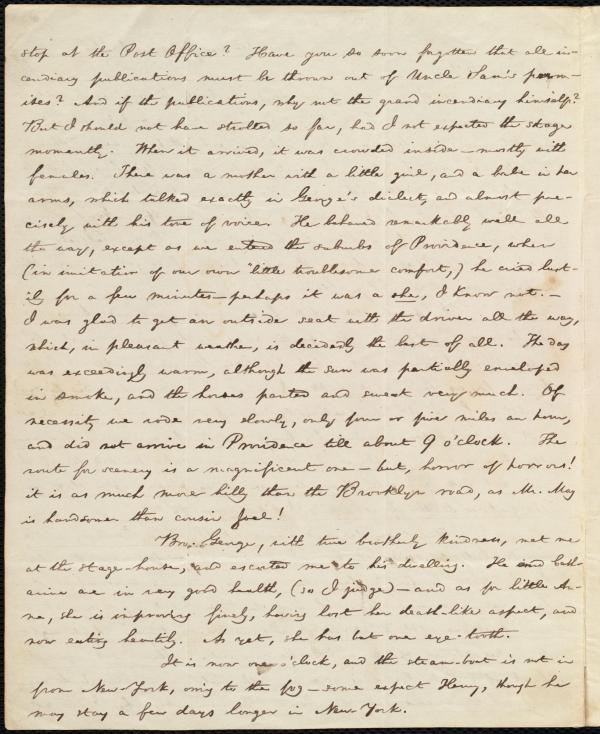 stop at the Post Office? Have you so soon forgotten that all in-
cendiary publications must be thrown out of Uncle Sam's prem-
ises? And if the publications, why not the grand incendiary himself?
But I should not have strolled so far, had I not expected the stage
momently. When it arrived, it was crowded inside—mostly with
females. There was a mother with a little girl, and a babe in her
arms, which talked exactly in George's dialect, and almost pre-
cisely with his tone of voice. He behaved remarkably well all
the way, except as we entered the suburbs of Providence, when
(in imitation of our own "little troublesome comfort,") he cried lust-
ily for a few minutes—perhaps it was a she, I know not.—
I was glad to get an outside seat with the driver all the way,
which, in pleasant weather, is decidedly the best of all. The day
was exceedingly warm, although the sun was partially enveloped
in smoke, and the horses panted and sweat very much. Of
necessity we rode very slowly, only four or five miles an hour,
and did not arrive in Providence till about 9 o'clock. The
route for scenery is a magnificent one—but, horror of horrors!
it is as much more hilly than the Brooklyn road, as Mr. May
is handsomer than cousin Joel!
Bro. George, with true brotherly kindness, met me
at the stage-house, and escorted me to his dwelling. He and Cath-
arine are in very good health, (so I judge)—and as for little An-
na, she is improving finely, having lost her death-like aspect, and
now eating heartily. As yet, she has but one eye-tooth.
It is now one o'clock, and the steam-boat is not in
from New-York, owing to the fog—some expect Henry, though he
may stay a few days longer in New-York.